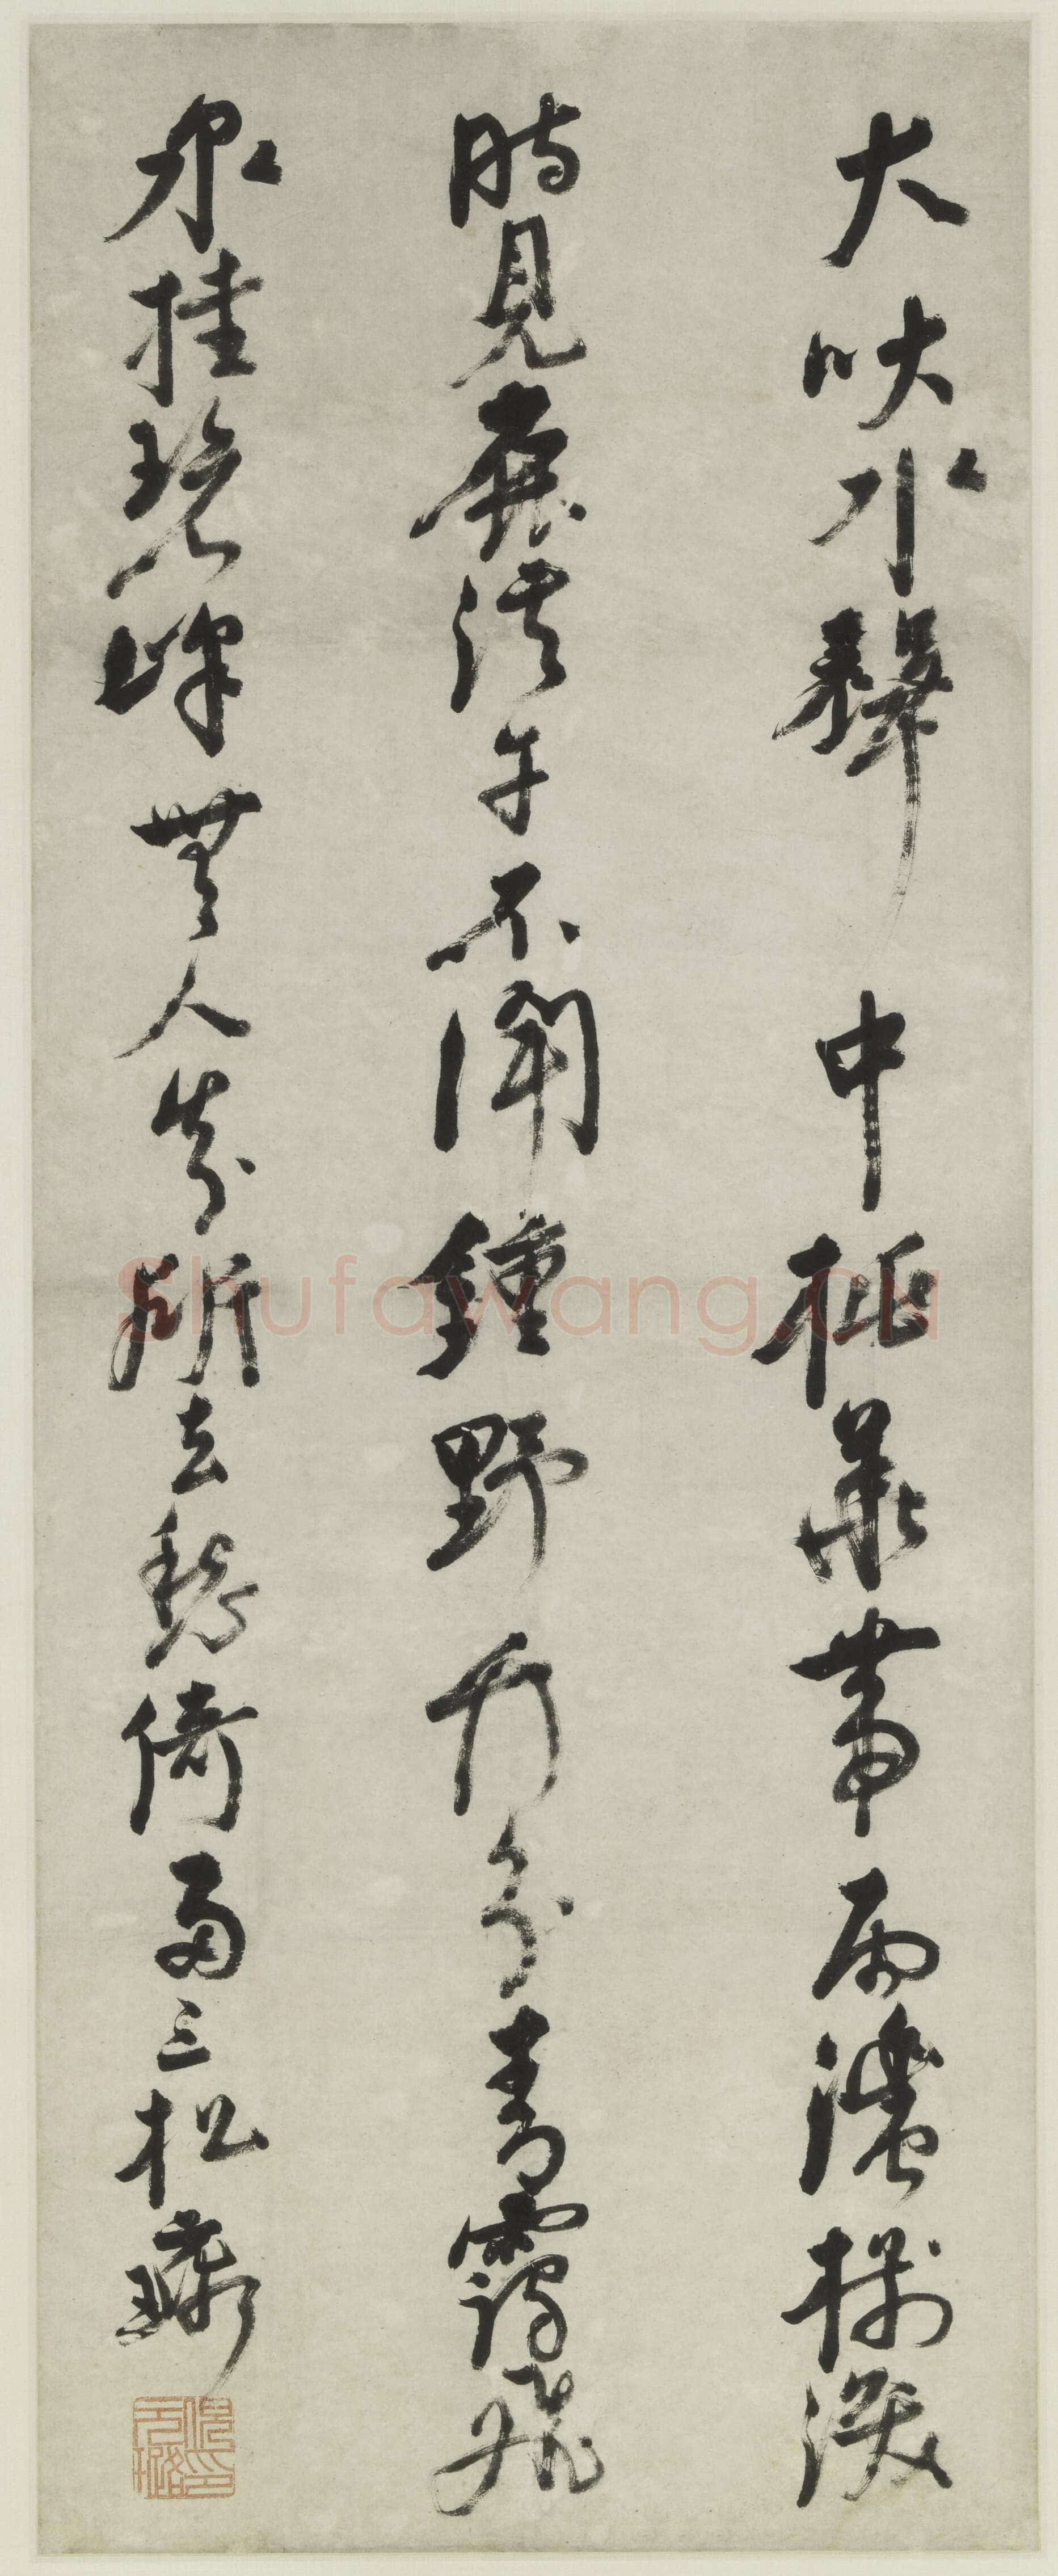 犬吠水聲中桃華帶雨濃樹深
時見鹿溪午不聞鍾野竹分青靄飛
泉挂碧峰無人知所去愁倚兩三松璐
倪元璐印
Shufawang.cn